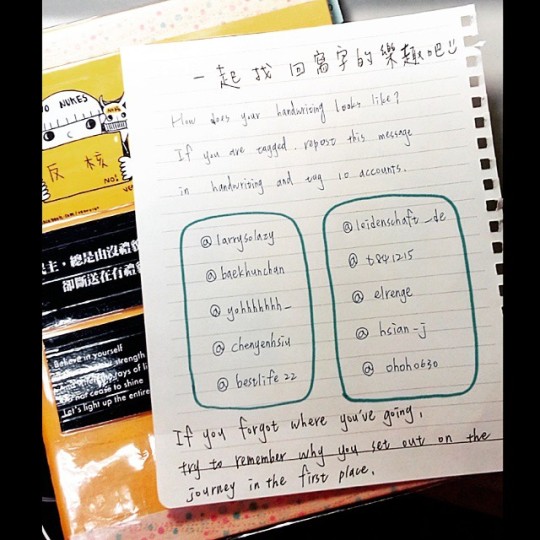 一起找回寫字的樂趣吧!!
How does your handwriting looks like?
If you are tagged. repost this message
in handwriting and tag 10 accounts.
@larrysolazy
@baekhunchan
@yohhhhhhh_
@chenyenhsiu
@bestlife22
@leidenschaft_de
@t841215
@elrenge
@hsian-j
@ohoho630
If you forgot where you've going,
try to remember why you set out on the
journey in the first place.
NO NUKES
反核
NO!
民主,總是由沒禮
卻斷送在有禮
Believe in yourself
strength
of li
not cease to shine
Let's light up the entire